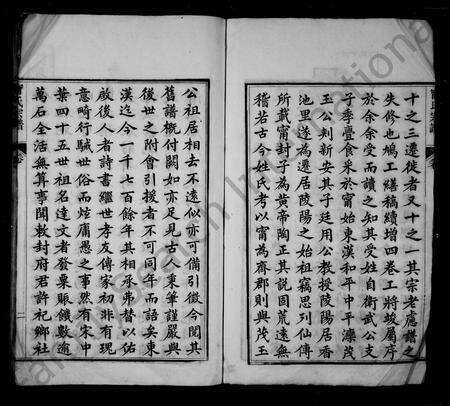 十之三遷徙者又十之一其宗老慮譜之
失修也鳩工繕稿續增四卷工將竣屬序
於余余受而讀之知其受姓自衛武公支
子季亹食采於甯始東漢和平中平濼茂
玉公刺新安其子廷用公教授陵陽居香
池里遂為遷居陵陽之始祖竊思列仙傳
所載甯封子為黃帝陶正其說固荒遠無
稽若古今姓氏考以甯為齊郡則與茂玉
公祖居相去不遠似亦可備引徵今閱其
舊譜概付闕如亦足見古人秉筆謹嚴與
後世之附會引援者不可同年而語矣東
漢迄今一千七百餘年其相承弗替以佑
啟後人者詩書繼世孝友傳家初非有瑰
意畸行駴世俗而炫庸愚之事然有宋中
葉四十五世祖名達文者發粟賑饑數逾
萬石全活無算事聞敕封府君許祀鄉社
氏宗譜